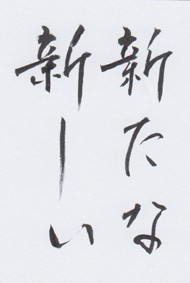 新たな
新しい